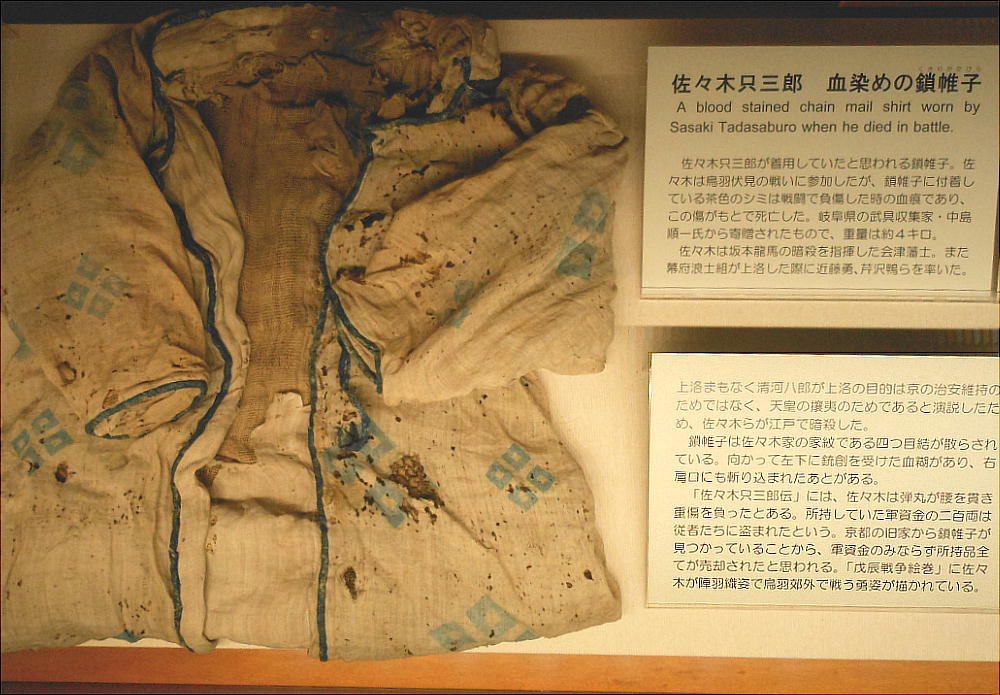 佐々木只三郎　血染めの鎖帷子
A blood stained chain mail shirt worn by
Sasaki Tadasaburo when he died in battle.
佐々木只三郎が着用していたと思われる鎖帷子。佐
々木は鳥羽伏見の戦いに参加したが、鎖帷子に付着し
ている茶色のシミは戦闘で負傷した時の血痕であり、
この傷がもとで死亡した。岐阜県の武具収集家・中島
順一氏から寄贈されたもので、重量は約４キロ。
佐々木は坂本龍馬の暗殺を指揮した会津藩士。また
幕府浪士組が上洛した際に近藤勇、芹沢鴨らを率いた。
上洛まもなく清河八郎が上洛の目的は京の治安維持の
ためではなく、天皇の攘夷のためであると演説したた
め、佐々木らが江戸で暗殺した。
鎖帷子は佐々木家の家紋である四つ目結が散らされ
ている。向かって左下に銃創を受けた血糊があり、右
肩口にも斬り込まれたあとがある。
「佐々木只三郎伝」には、佐々木は弾丸が腰を貫き
重傷を負ったとある。所持していた軍資金の二百両は
従者たちに盗まれたという。京都の旧家から鎖帷子が
見つかっていることから、軍資金のみならず所持品全
てが売却されたと思われる。「戊辰戦争絵巻」に佐々
木が陣羽織姿で鳥羽郊外で戦う勇姿が描かれている。